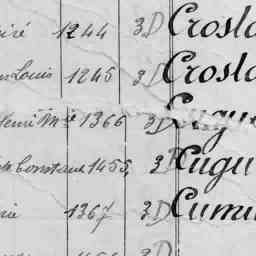 iré 1244 3D Crosla
Louis 1245 3D Crosla
Henri Mie 1366 3D Cugu
Constance 1455 3D Cugu
rie 1367 3D Cumu
3D